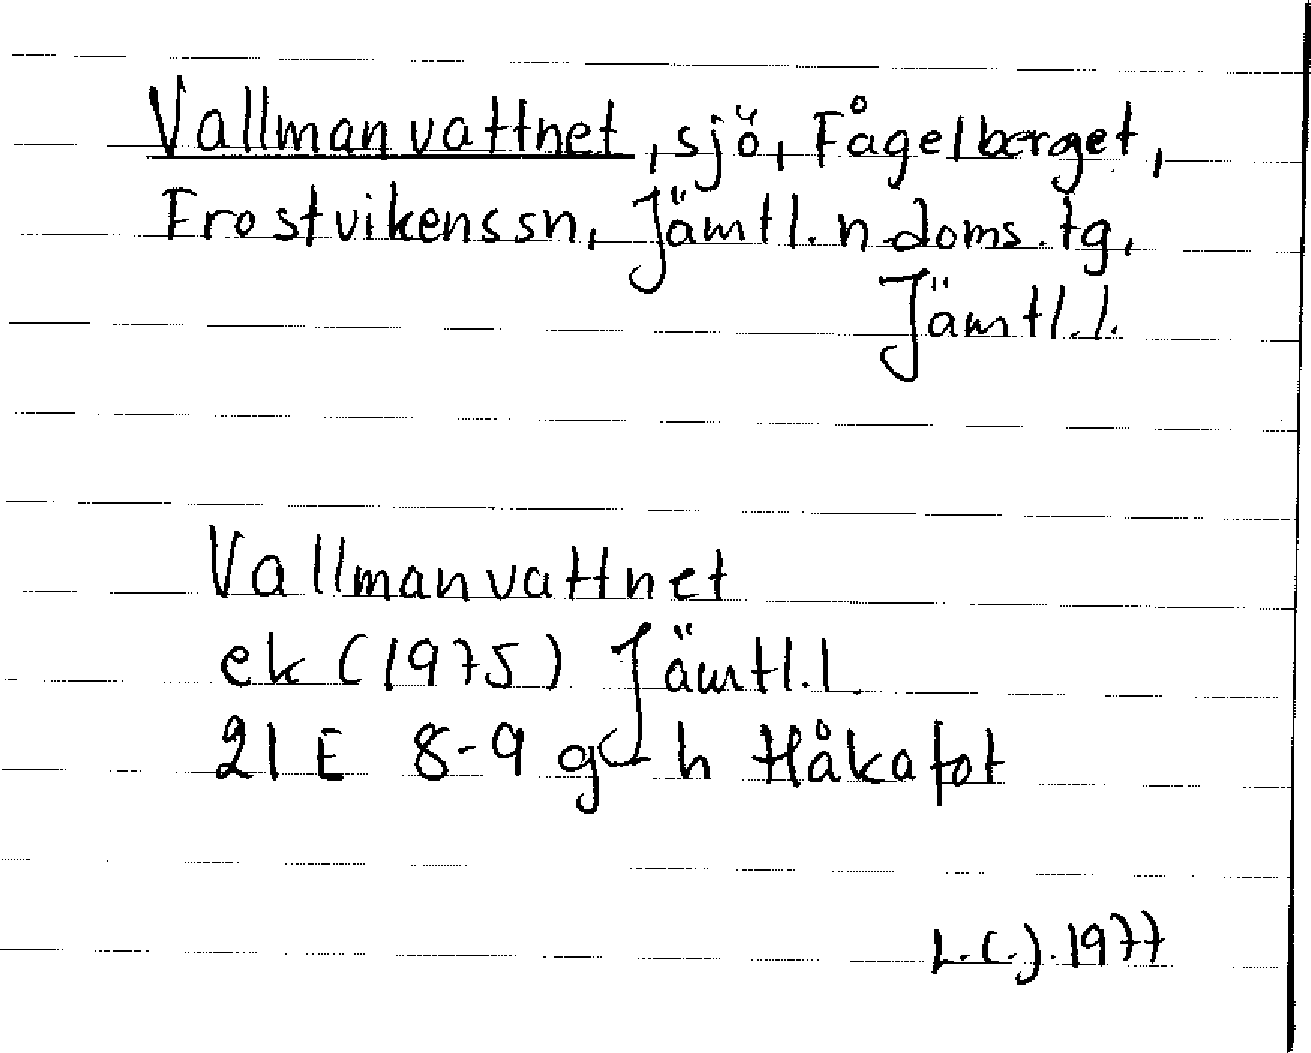 Vallmanvattnet, sjö, Fågelberget,
Frostvikens sn, Jämtl. n. doms. tg,
Jämtl. l.
Vallmanvattnet
ek (1975) Jämtl. l.
21 E 8-9 g-h Håkafot
L.C.J. 1977